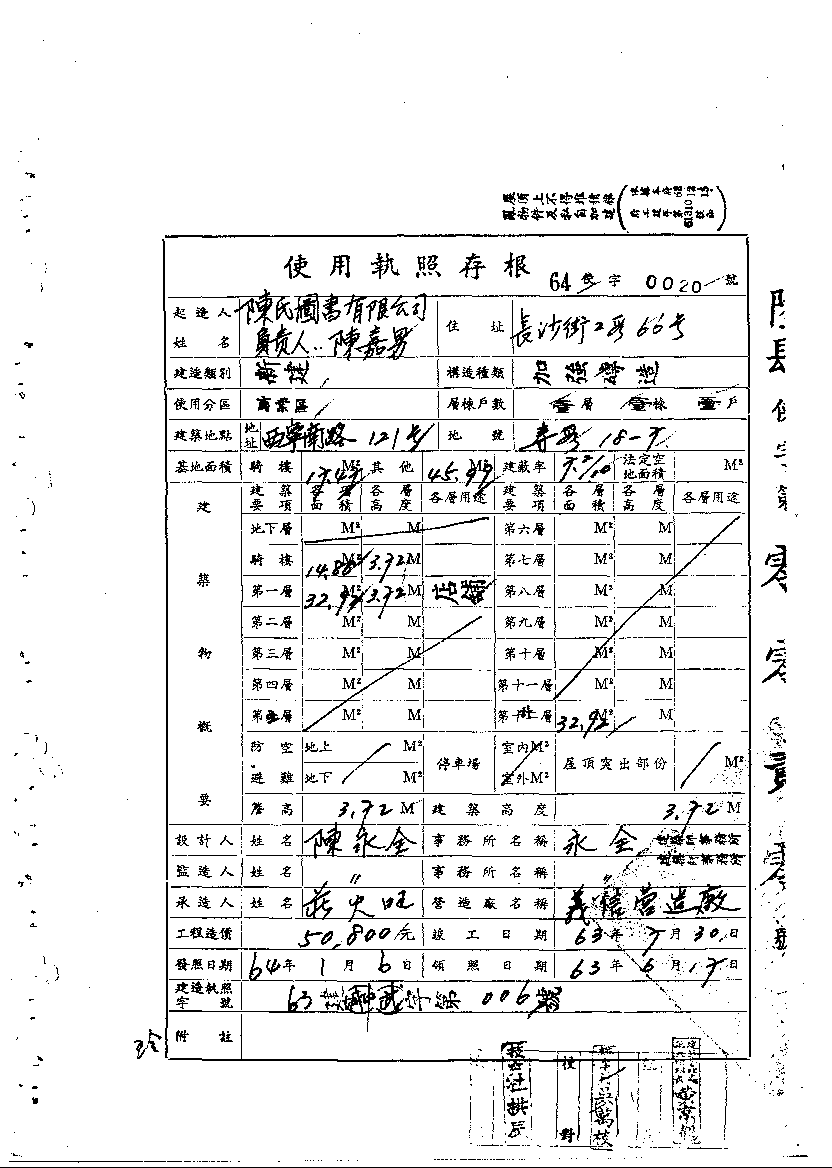 屋頂上不得堆積雜
亂物件及私自加建
使用執照存根
64 字 0020 號
起造人 姓名 陳氏圖書有限公司 負責人:陳嘉男 住址 長沙街2段66号
建造類別 新建 構造種類 加強磚造
使用分區 商業區 層棟戶數 壹層 壹棟 壹戶
建築地點 地址 西寧南路121号 地號
基地面積 騎樓 M² 其他 45.97 M² 建蔽率 法定空地面積 M²
建築物概要
建築要項 各層面積 各層高度 各層用途 建築要項 各層面積 各層高度 各層用途
地下層 M² M 第六層 M² M
騎樓 14.88 M² 3.72 M 第七層 M² M
第一層 32.92 M² 3.72 M 店鋪 第八層 M² M
第二層 M² M 第九層 M² M
第三層 M² M 第十層 M² M
第四層 M² M 第十一層 M² M
第五層 M² M 32.92 M² M
防空避難 地上 M² 地下 M² 停車場 室內M² 室外M² 屋頂突出部份 M²
簷高 3.72 M 建築高度 3.72 M
設計人 姓名 陳永全 事務所名稱 永全 建築師事務所
監造人 姓名 〃 事務所名稱 〃
承造人 姓名 莊火旺 營造廠名稱 義信營造廠
工程造價 50,800元 竣工日期 63年7月30日
發照日期 64年1月6日 領照日期 63年6月17日
建造執照字號 63建 字第006號
附註
校對